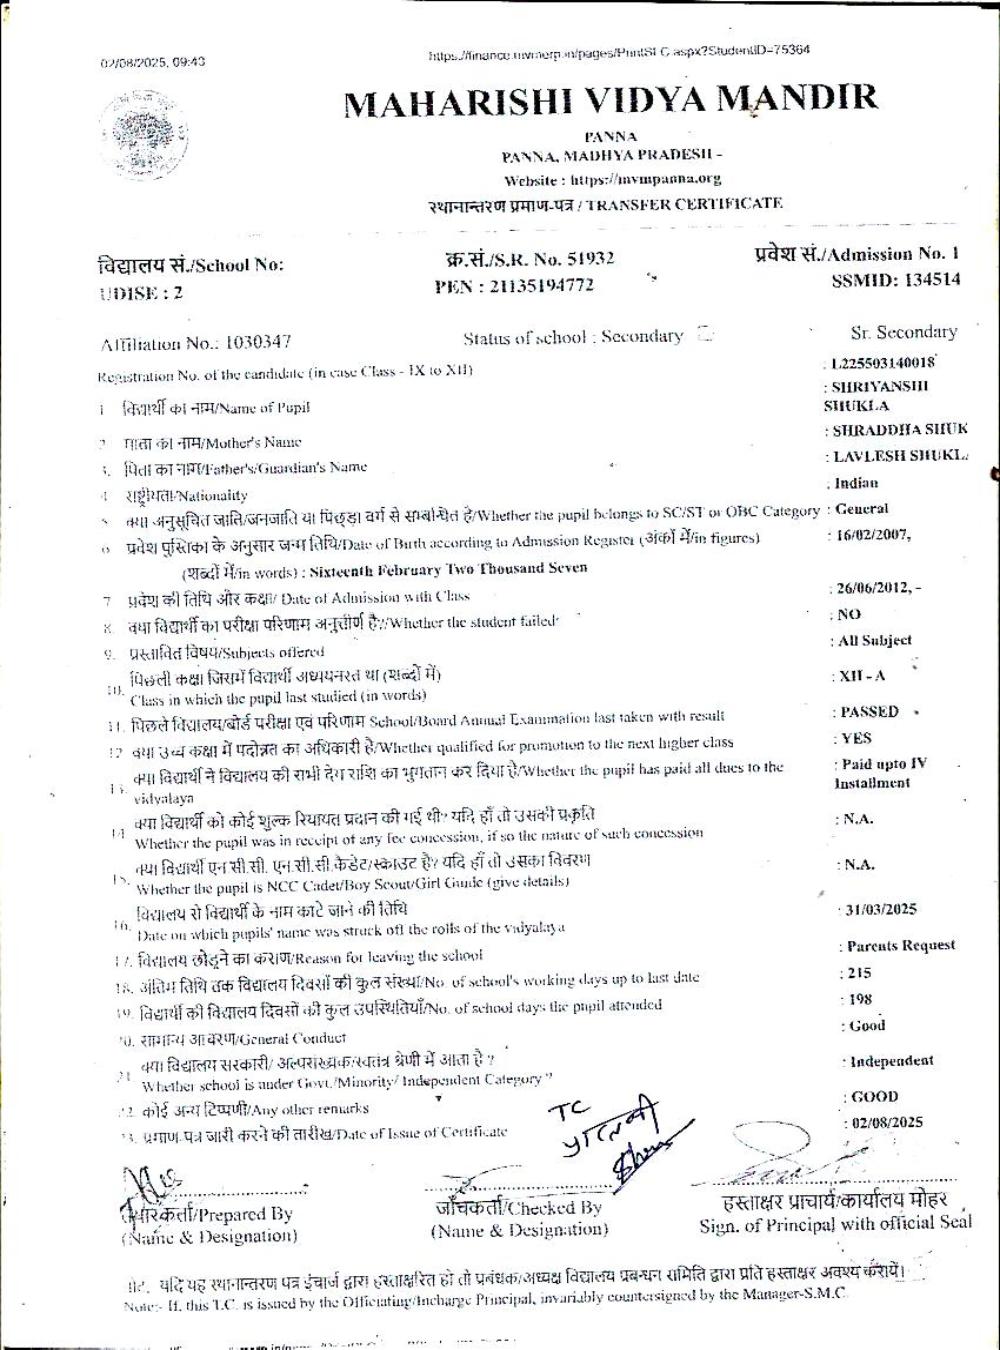 02/08/2025, 09:43
MAHARISHI VIDYA MANDIR
PANNA
PANNA, MADHYA PRADESH -
Website : https://mvmpanna.org
स्थानान्तरण प्रमाण-पत्र / TRANSFER CERTIFICATE
विद्यालय सं./School No: क्र.सं./S.R. No. 51932 प्रवेश सं./Admission No. 1
UDISE : 2 PEN : 21135194772 SSMID: 134514
Affiliation No.: 1030347 Status of school : Secondary Sr. Secondary
Registration No. of the candidate (in case Class - IX to XII) : L225503140018
1 विद्यार्थी का नाम/Name of Pupil : SHRIYANSHI SHUKLA
2 माता का नाम/Mother's Name : SHRADDHA SHUK
3. पिता का नाम/Father's/Guardian's Name : LAVLESH SHUKL
4 राष्ट्रीयता/Nationality : Indian
5 क्या अनुसूचित जाति/जनजाति या पिछड़ा वर्ग से सम्बन्धित है/Whether the pupil belongs to SC/ST or OBC Category : General
6 प्रवेश पुस्तिका के अनुसार जन्म तिथि/Date of Birth according to Admission Register (अंकों में/in figures) : 16/02/2007,
(शब्दों में/in words) : Sixteenth February Two Thousand Seven
7 प्रवेश की तिथि और कक्षा/ Date of Admission with Class : 26/06/2012, -
8. क्या विद्यार्थी का परीक्षा परिणाम अनुत्तीर्ण है?/Whether the student failed : NO
9. प्रस्तावित विषय/Subjects offered : All Subject
10. पिछली कक्षा जिसमें विद्यार्थी अध्ययनरत था (शब्दों में) : XII - A
Class in which the pupil last studied (in words)
11. पिछले विद्यालय/बोर्ड परीक्षा एवं परिणाम School/Board Annual Examination last taken with result : PASSED
12 क्या उच्च कक्षा में पदोन्नत का अधिकारी है/Whether qualified for promotion to the next higher class : YES
13. क्या विद्यार्थी ने विद्यालय की सभी देय राशि का भुगतान कर दिया है/Whether the pupil has paid all dues to the vidyalaya : Paid upto IV Installment
14 क्या विद्यार्थी को कोई शुल्क रियायत प्रदान की गई थी? यदि हाँ तो उसकी प्रकृति : N.A.
Whether the pupil was in receipt of any fee concession, if so the nature of such concession
15. क्या विद्यार्थी एन.सी.सी. एन.सी.सी.कैडेट/स्काउट है? यदि हाँ तो उसका विवरण : N.A.
Whether the pupil is NCC Cadet/Boy Scout/Girl Guide (give details)
16. विद्यालय से विद्यार्थी के नाम काटे जाने की तिथि : 31/03/2025
Date on which pupils' name was struck off the rolls of the vidyalaya
17. विद्यालय छोड़ने का कराण/Reason for leaving the school : Parents Request
18. अंतिम तिथि तक विद्यालय दिवसों की कुल संख्या/No. of school's working days up to last date : 215
19. विद्यार्थी की विद्यालय दिवसों की कुल उपस्थितियाँ/No. of school days the pupil attended : 198
20. सामान्य आचरण/General Conduct : Good
21 क्या विद्यालय सरकारी/ अल्पसंख्यक/स्वतंत्र श्रेणी में आता है ? : Independent
Whether school is under Govt./Minority/ Independent Category ?
22. कोई अन्य टिप्पणी/Any other remarks : GOOD
23. प्रमाण-पत्र जारी करने की तारीख/Date of Issue of Certificate : 02/08/2025
TC
तैयारकर्ता/Prepared By जाँचकर्ता/Checked By हस्ताक्षर प्राचार्य/कार्यालय मोहर
(Name & Designation) (Name & Designation) Sign. of Principal with official Seal
नोट. यदि यह स्थानान्तरण पत्र इंचार्ज द्वारा हस्ताक्षरित हो तो प्रबंधक/अध्यक्ष विद्यालय प्रबन्धन समिति द्वारा प्रति हस्ताक्षर अवश्य करायें।
Note:- If, this T.C. is issued by the Officiating/Incharge Principal, invariably countersigned by the Manager-S.M.C.